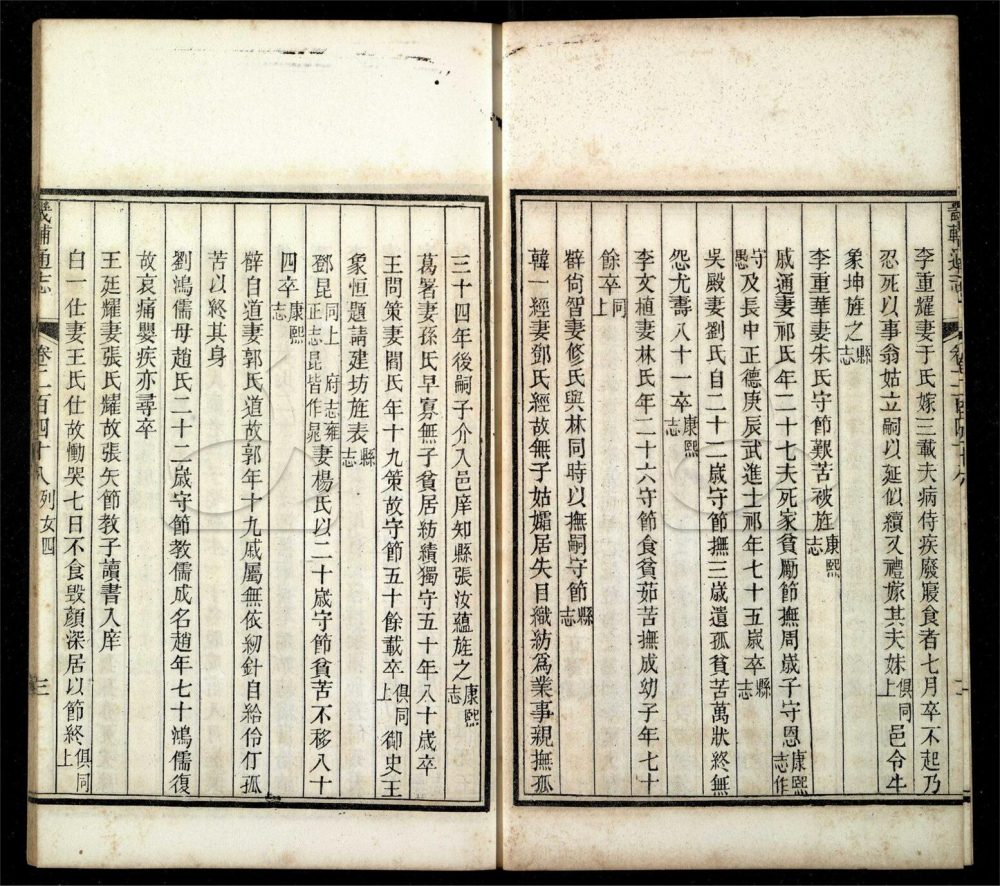 李重耀妻于氏嫁三載夫病侍疾廢寢食者七月卒不起乃
忍死以事翁姑立嗣以延似續又禮嫁其夫妹俱同上邑令牛
象坤旌之縣志
李重華妻朱氏守節艱苦被旌康熙志
戚通妻祁氏年二十七夫死家貧勵節撫周歲子守恩康熙志作
守愚及長中正德庚辰武進士祁年七十五歲卒縣志
吳殿妻劉氏自二十二歲守節撫三歲遺孤貧苦萬狀終無
怨尤壽八十一卒康熙志
李文植妻林氏年二十六守節食貧茹苦撫成幼子年七十
餘卒同上
薜尙智妻修氏與林同時以撫嗣守節縣志
韓一經妻鄧氏經故無子姑孀居失目織紡爲業事親撫孤
畿輔通志
卷二百四十八
列女四
三
三十四年後嗣子介入邑庠知縣張汝蘊旌之康熙志
葛署妻孫氏早寡無子貧居紡績獨守五十年八十歲卒
王問策妻閻氏年十九策故守節五十餘載卒俱同上御史王
象恒題請建坊旌表縣志
鄧昆同上府志雍正志昆皆作晁妻楊氏以二十歲守節貧苦不移八十
四卒康熙志
薜自道妻郭氏道故郭年十九戚屬無依紉針自給伶仃孤
苦以終其身
劉鴻儒母趙氏二十二歲守節教儒成名趙年七十鴻儒復
故哀痛嬰疾亦尋卒
王廷耀妻張氏耀故張矢節教子讀書入庠
白一仕妻王氏仕故慟哭七日不食毀顏深居以節終俱同上